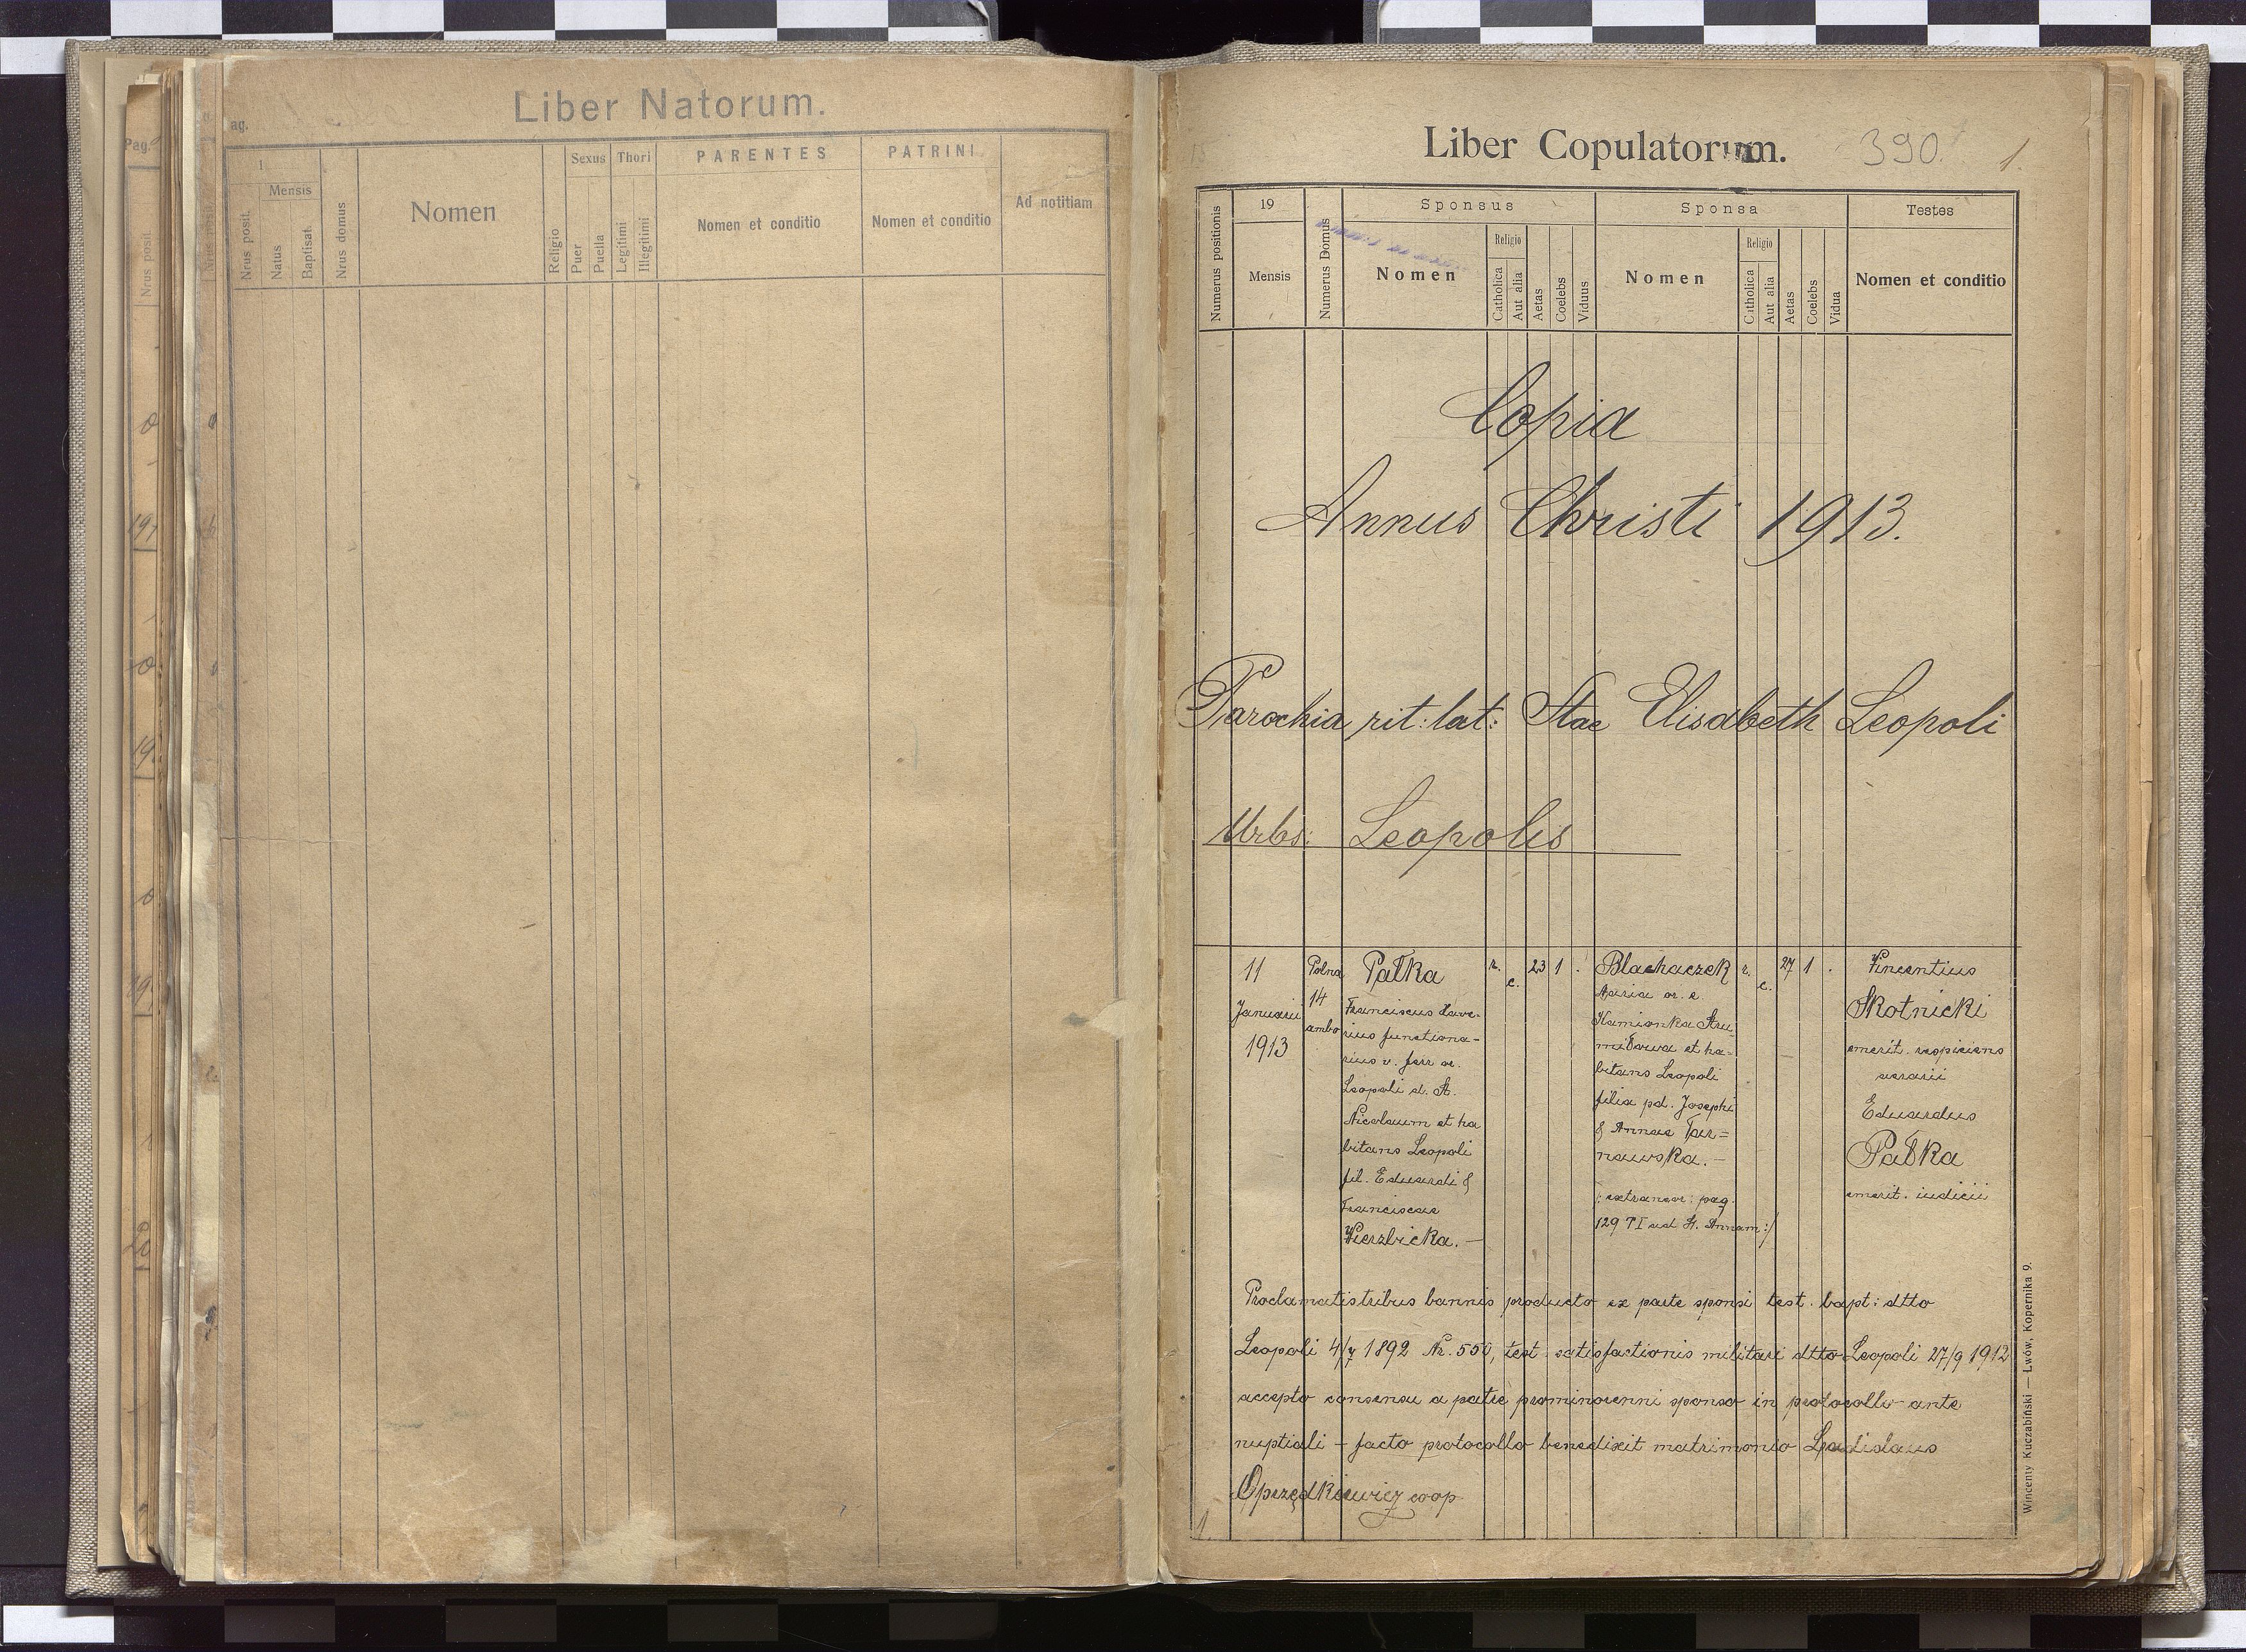 Liber Natorum.
ag.
Pag.
1
Mensis
Nrus posit.
Natus
Baptisat.
Nrus domus
Nomen
Religio
Sexus
Puer
Puella
Thori
Legitimi
Illegitimi
PARENTES
Nomen et conditio
PATRINI
Nomen et conditio
Ad notitiam
Nrus posit.
Liber Copulatorum.
390.
1.
Numerus positionis
19
Mensis
Numerus Domus
Sponsus
Nomen
Religio
Catholica
Aut alia
Aetas
Coelebs
Viduus
Sponsa
Nomen
Religio
Catholica
Aut alia
Aetas
Coelebs
Vidua
Testes
Nomen et conditio
Copia
Annus Christi 1913.
Parochia rit: lat: Stae Elisabeth Leopoli
Urbs: Leopolis
11
Januarii
1913
Polna
14
ambo
Pałka
Franciscus Xave-
rius functiona-
rius v. ferr or.
Leopoli ad St.
Nicolaum et ha
bitans Leopoli
fil. Eduardi &
Franciscae
Wierzbicka. -
r.
c.
23
1
.
Blachaczek
Maria or. e
Kamionka Stru
miłowa et ha-
bitans Leopoli
filia pd. Josephi
& Annae Tar=
nawska. -
/: extraneor: pag.
129 T I ad St. Annam :/
r.
c.
27
1
.
Vincentius
Skotnicki
emerit. respiciens
aerarii
Eduardus
Pałka
emerit. iudicii
Proclamatis tribus bannis producto ex parte sponsi test. bapt: dtto
Leopoli 4/7 1892 Nr. 550, test satisfactionis militari dtto Leopoli 27/9 1912
accepto consensu a patre prominorenni sponso in protocollo ante
nuptiali - facto protocollo benedixit matrimonio Ladislaus
Oprzędkiewicz coop
1.
Wincenty Kuczabiński — Lwów, Kopernika 9.